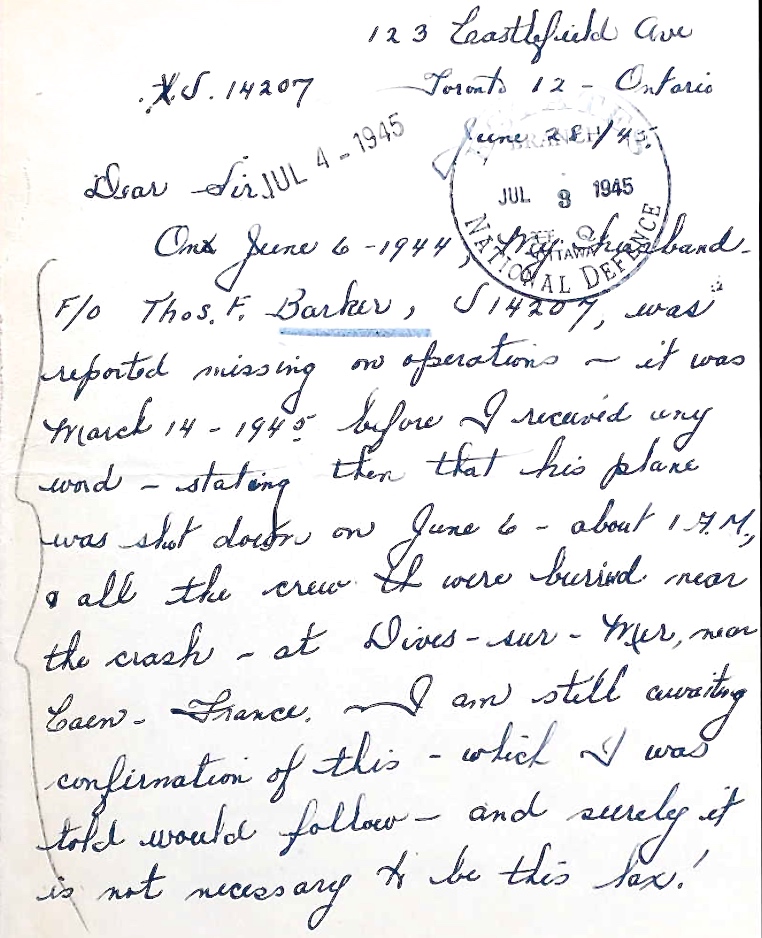 123 Castlefield Ave
X.J. 14207 Toronto 12 - Ontario
June 28/45.
BRANCH
JUL 4 - 1945
JUL 9 1945
OTTAWA
NATIONAL DEFENCE
Dear Sir,
On June 6 - 1944, My husband -
F/o Thos. F. Barker, J14207, was
reported missing on operations - it was
March 14 - 1945 before I received any
word - stating then that his plane
was shot down on June 6 - about 1 A.M.,
& all the crew were buried near
the crash - at Dives-sur-Mer, near
Caen - France. - I am still awaiting
confirnation of this - which I was
told would follow - and surely it
is not necessary to be this lax!